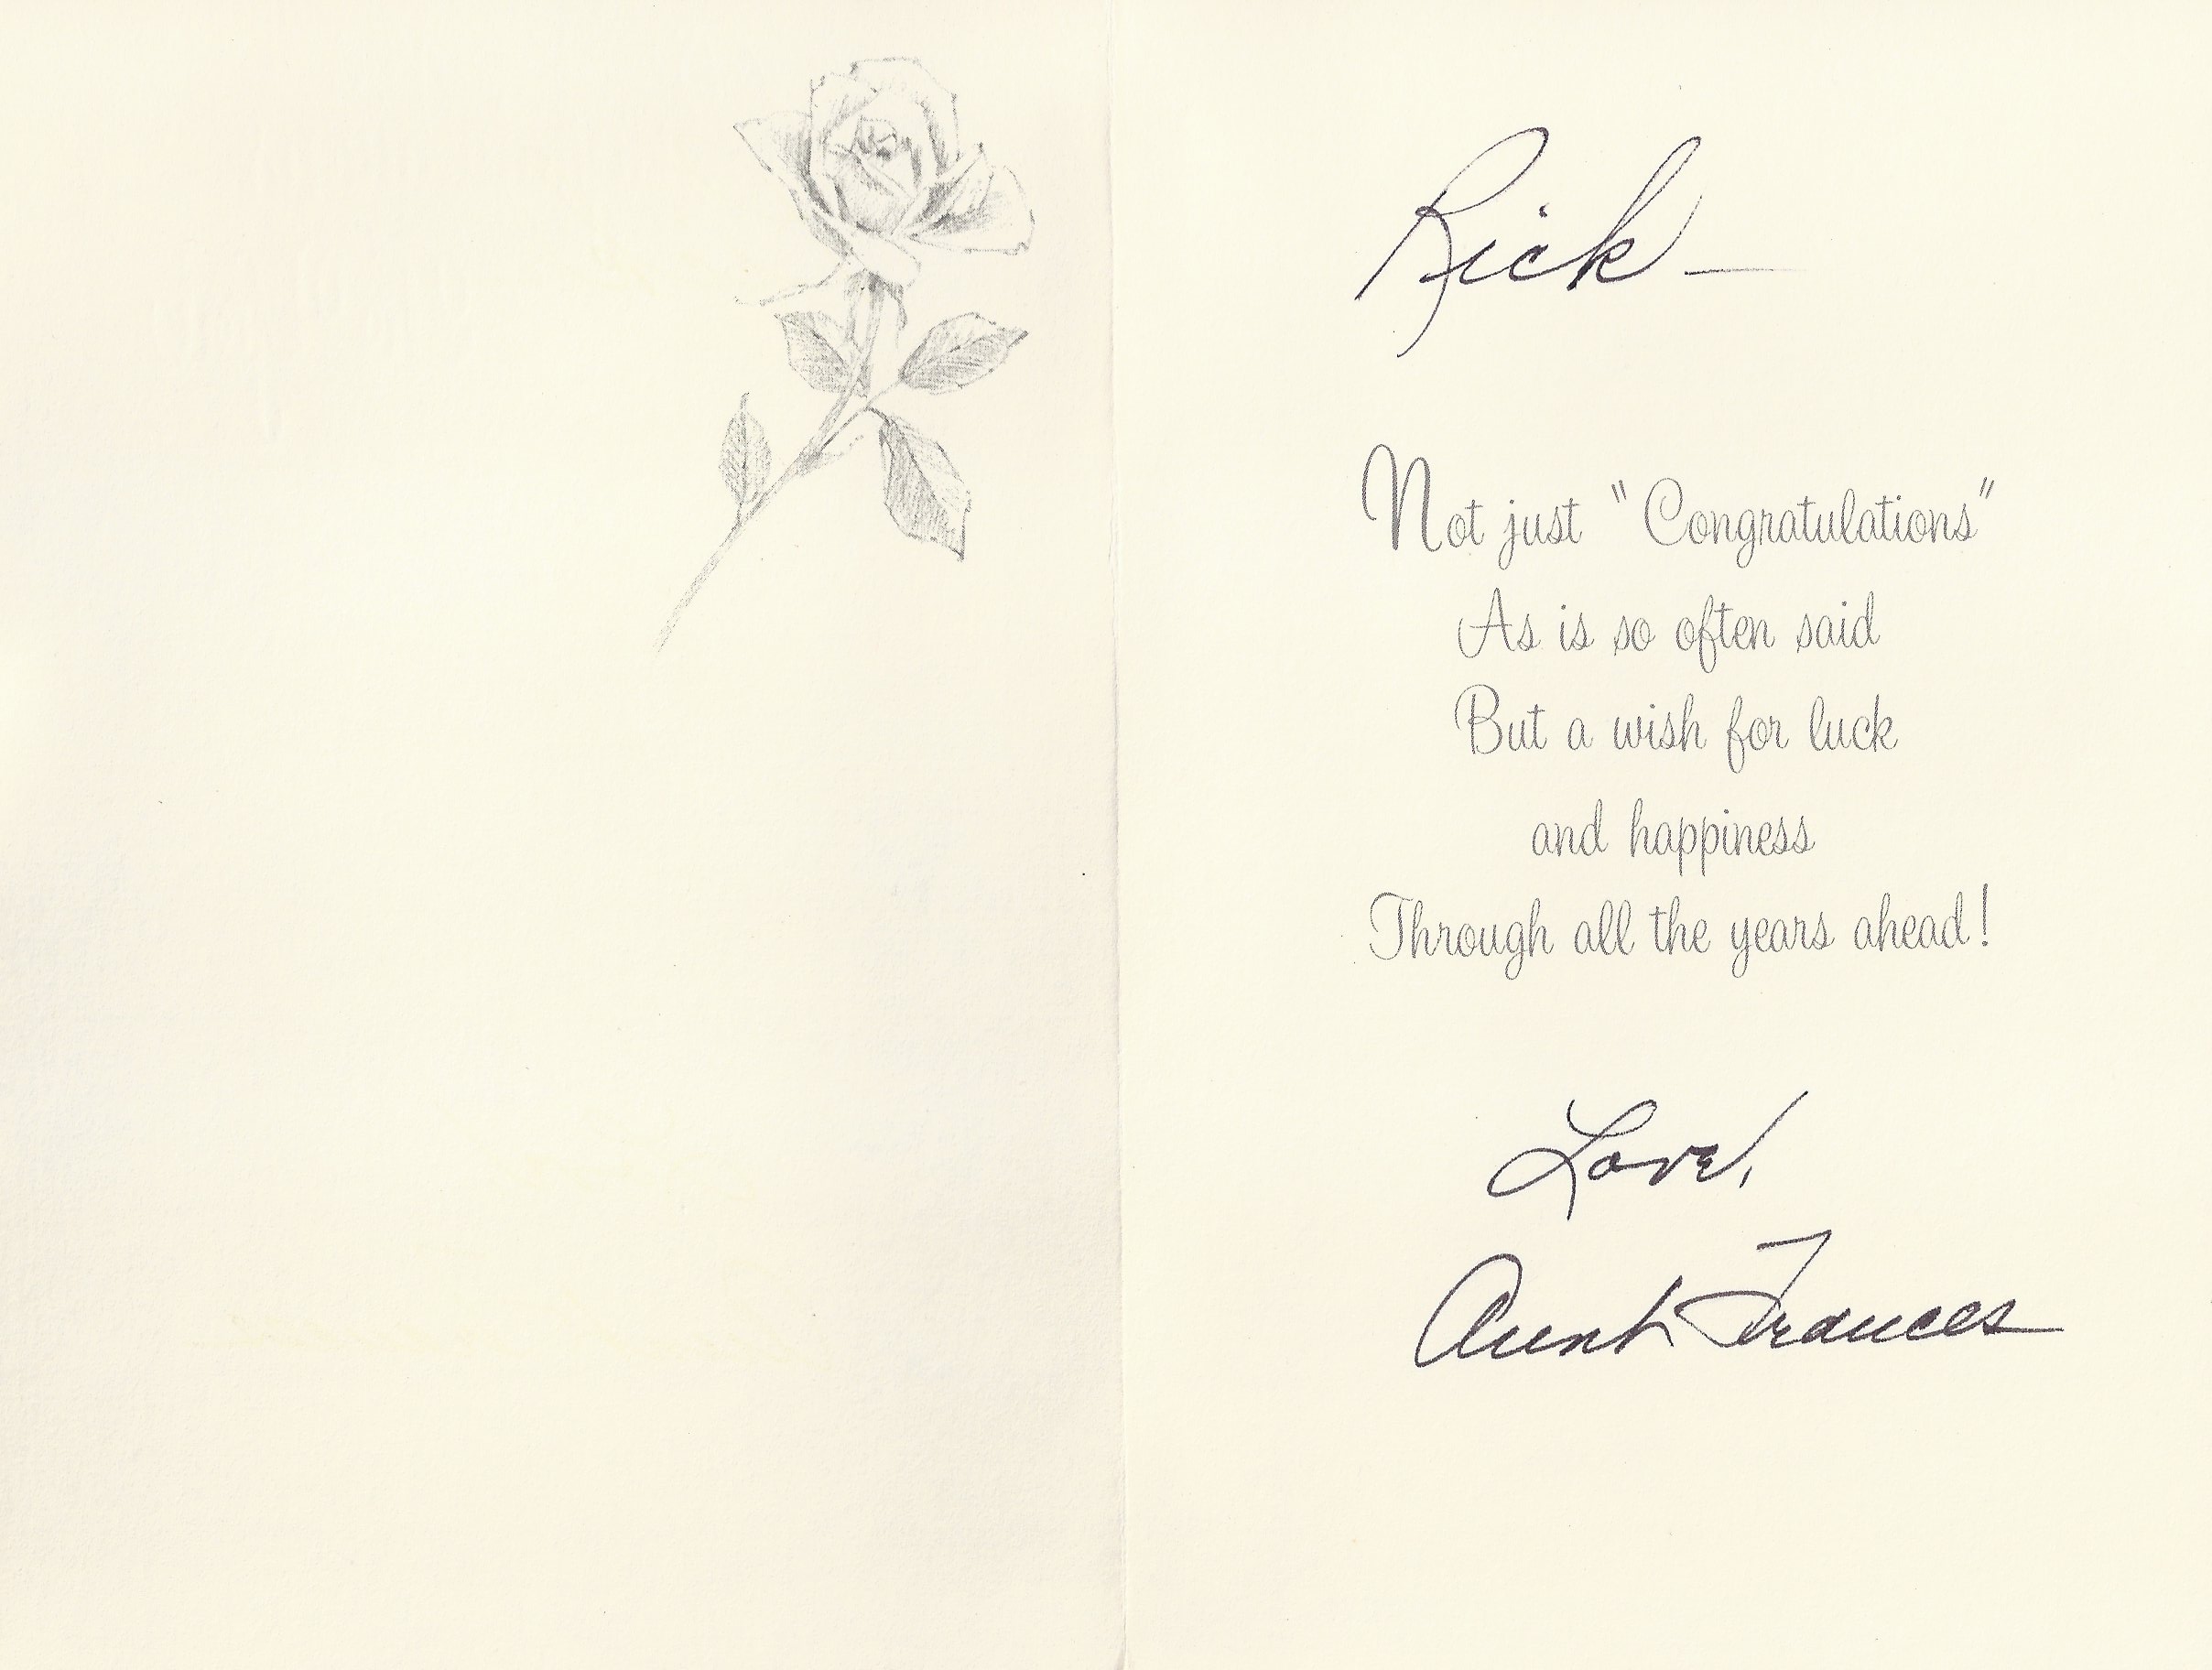 Rick —
Not just "Congratulations"
As is so often said
But a wish for luck
and happiness
Through all the years ahead!
Love,
Aunt Frances